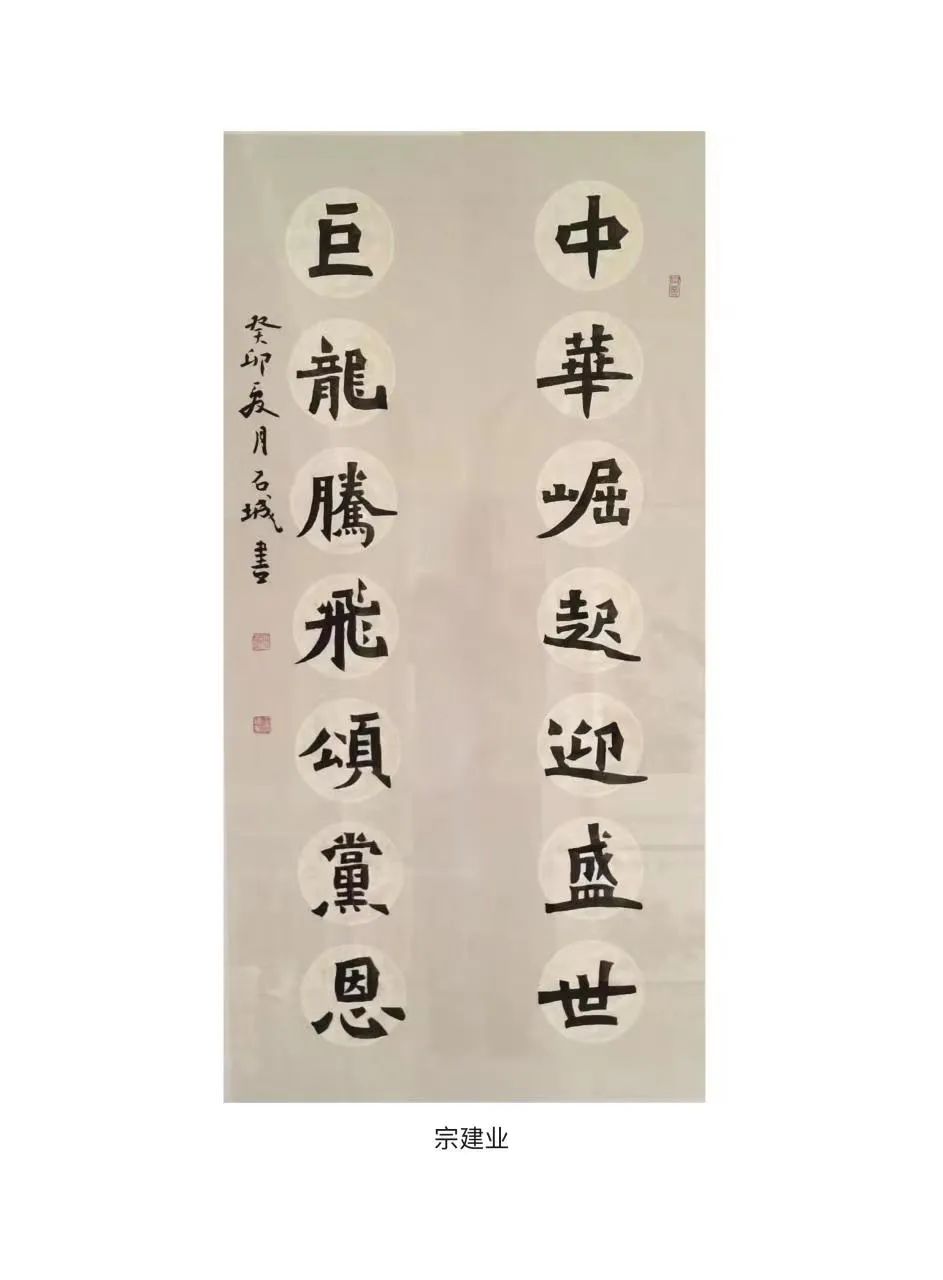 中華崛起迎盛世
巨龍騰飛頌黨恩
癸卯夏月石城書
宗建业